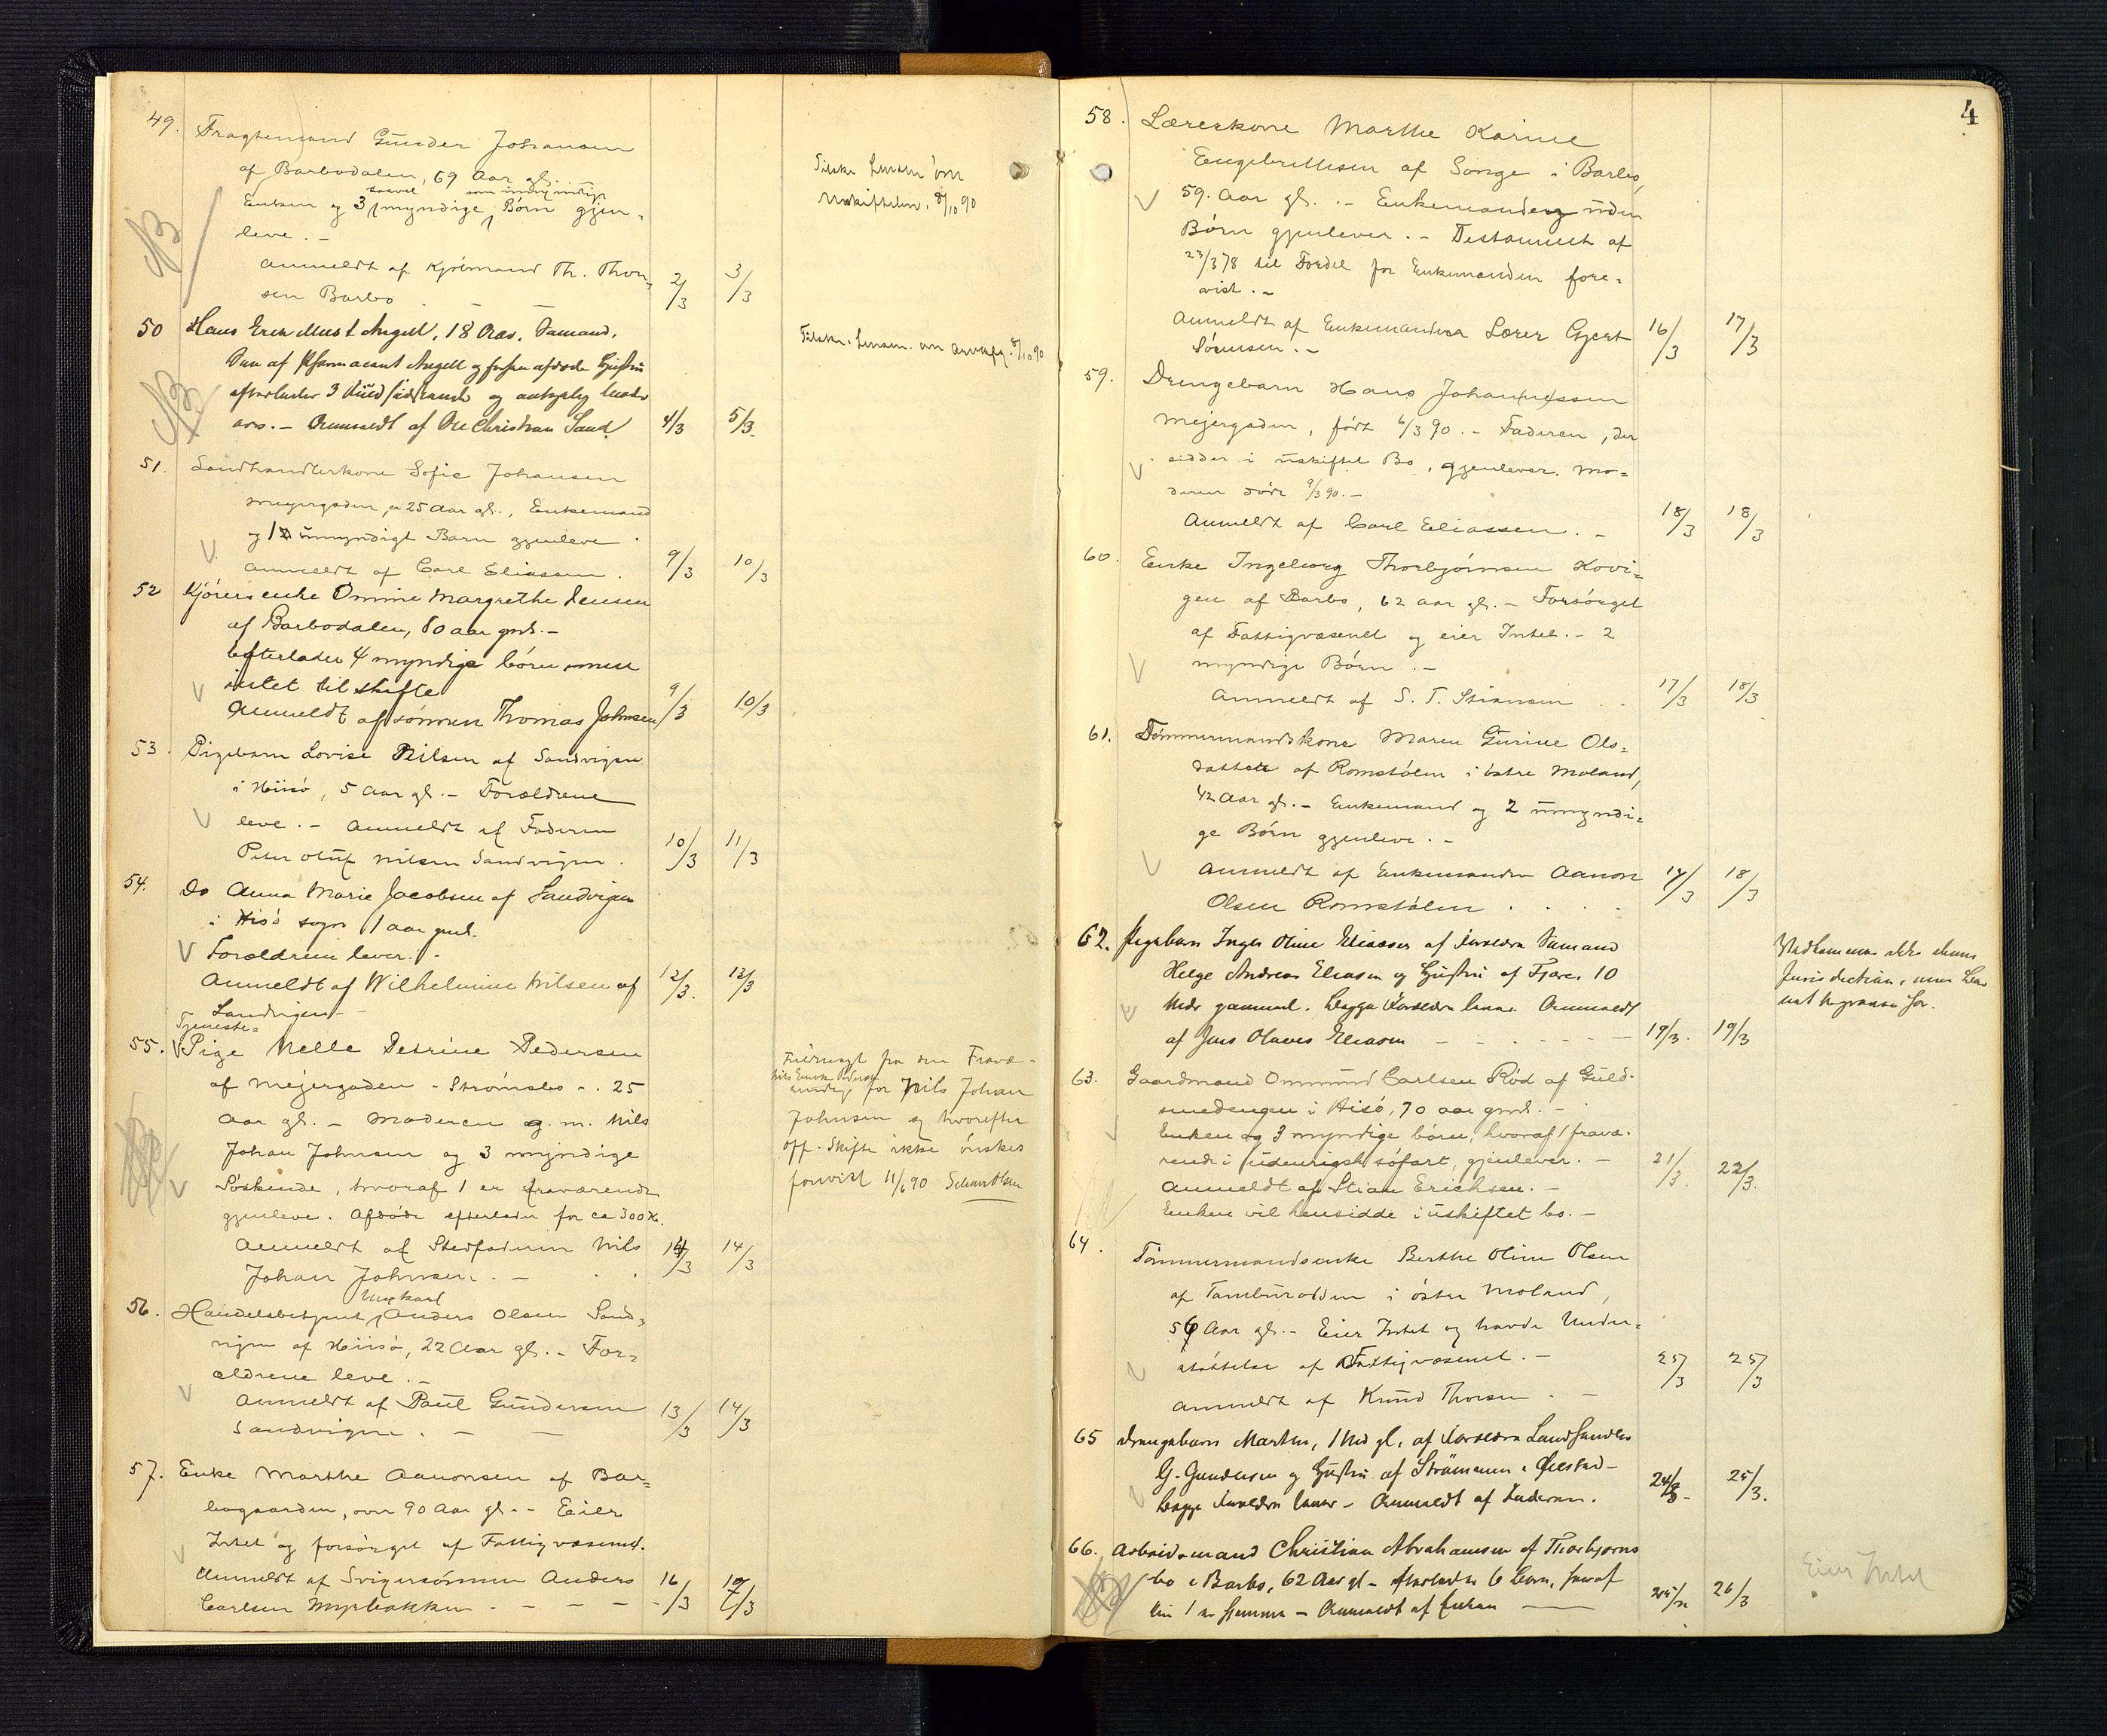 49. Fragtemand Gunder Johansen
af Barbodalen, 69 Aar gl. –
saavel som umyndige
Enken og 3 myndige Børn gjen-
leve. –
Anmeldt af Kjøbmand Th. Thor-
sen Barbo 2/3 3/3
8/10 90
50 Hans Erek Angell, 18 Aar, Sømand,
Søn af Angell og
efterlader 3 og
arv. – Anmeldt af Ole Christian Sand 4/3 5/3.
8/10 90
51. Landhandlerkone Sofie Johansen
Mejergaden, 25 Aar gl., Enkemand
og 1 umyndigt Barn gjenleve
Anmeldt af Carl Eliassen. 9/3 10/3
52 Kjørers enke Omine Margrethe Jensen
af Barbodalen, 80 aar gml. –
Efterlader 4 myndige børn, men
intet til skifte
Anmeldt af sønnen Thomas Johnsen 9/3 10/3
53. Pigebarn Lovise Nilsen af Sandvigen
i Hiisø, 5 Aar gl. – Forældrene
leve. – Anmeldt af Faderen
Peter Oluf Nilsen Sandvigen. 10/3 11/3
54. Do Anna Marie Jacobsen af Sandvigen
i Hisø sogn 1 aar gml.
Forældrene lever. –
Anmeldt af Wilhelmine Nilsen af 12/3. 12/3
Sandvigen –
Tjeneste-
55. Pige Nelle Petrine Pedersen
af Mejergaden – Strømsbo –. 25
Aar gl. – Moderen g. m. Nils
Johan Johnsen og 3 myndige
Søskende, hvoraf 1 er fraværende
gjenleve. Afdøde efterlader for ca 300 Kr.
Anmeldt af Stedfaderen Nils 14/3 14/3
Johan Johnsen. –
fra den Fravæ-
for Nils Johan
Johnsen og hvorefter
off. Skifte ikke ønskes
forevist 11/6 90
Ungkarl
56. Handelsbetjent Anders Olsen Sand-
vigen af Hiisø, 22 Aar gl. – For-
ældrene leve. –
Anmeldt af Paul Gundersen 13/3 14/3
Sandvigen. – –
57. Enke Marthe Aanonsen af Bar-
bogaarden, over 90 Aar gl. – Eier
Intet og forsørget af Fattigvæsenet.
Anmeldt af Svigersønnen Anders 16/3
Carlsen Myrbakken. – – –
4
58. Lærerkone Marthe Karine
Engebrettsen af Songe i Barbo,
59. Aar gl. – Enkemanden uden
Børn gjenlever. – Testament af
23/3 78 til Fordel for Enkemanden fore-
vist. –
Anmeldt af Enkemanden Lærer Gjert 16/3 17/3
Sørensen. –
59. Drengebarn Hans Johan(ne)ssen
Mejergaden, født 6/3 90. – Faderen, der
sidder i uskiftet Bo, gjenlever. Mo-
deren døde 9/3 90. –
Anmeldt af Carl Eliassen. – 18/3 18/3
60. Enke Ingeborg Thorbjørnsen Kovi-
gen af Barbo, 62 aar gl. – Forsørget
af Fattigvæsenet og eier Intet. – 2
myndige Børn. –
Anmeldt af S. T. Stiansen 17/3 18/3
61. Tømmermandskone Maren Gurine Ols-
datter af Romstølen i østre Moland,
42 Aar gl. – Enkemand og 2 umyndi-
ge Børn gjenleve. –
Anmeldt af Enkemanden Aanon 17/3 18/3
Olsen Romstølen
62. Pigebarn Inger Oline Eliassen af Forældre Sømand
Helge Andreas Eliasen og Hustru af Tjore, 10
Mdr gammel. Begge Forældre lever. Anmeldt
af Jens Olaves Eliasen – 19/3. 19/3
Vedkommer ikke denne
Jurisdiction, men
63. Gaardmand Ommund Carlsen Rød af Guld-
smedengen i Hisø, 70 aar gml. –
Enken og 3 myndige børn, hvoraf 1 fravæ-
rende i udenrigsk søfart, gjenlever. – 21/3. 22/3.
Anmeldt af Stian Erichsen. –
Enken vil hensidde i uskiftet bo. –
64. Tømmermandsenke Berthe Oline Olsen
af Tamburodden i østre Moland,
Aar gl. – Eier Intet og havde Under-
støttelse af Fattigvæsenet. – 25/3 25/3
Anmeldt af Knud Thorsen –
65 Drengebarn Marthin, 1 Md gl. af Forældre Landhandler
G. Gundersen og Hustru af Strømmen i Øiestad –
Begge Forældre lever – Anmeldt af Faderen. 24/3 25/3.
66. Arbeidsmand Christian Abrahamsen af Thorbjørns-
bo i Barbo, 62 Aar gl – efterlader 6 Børn, hvoraf
kun 1 er hjemme – Anmeldt af Enken 26/3
Eier Intet